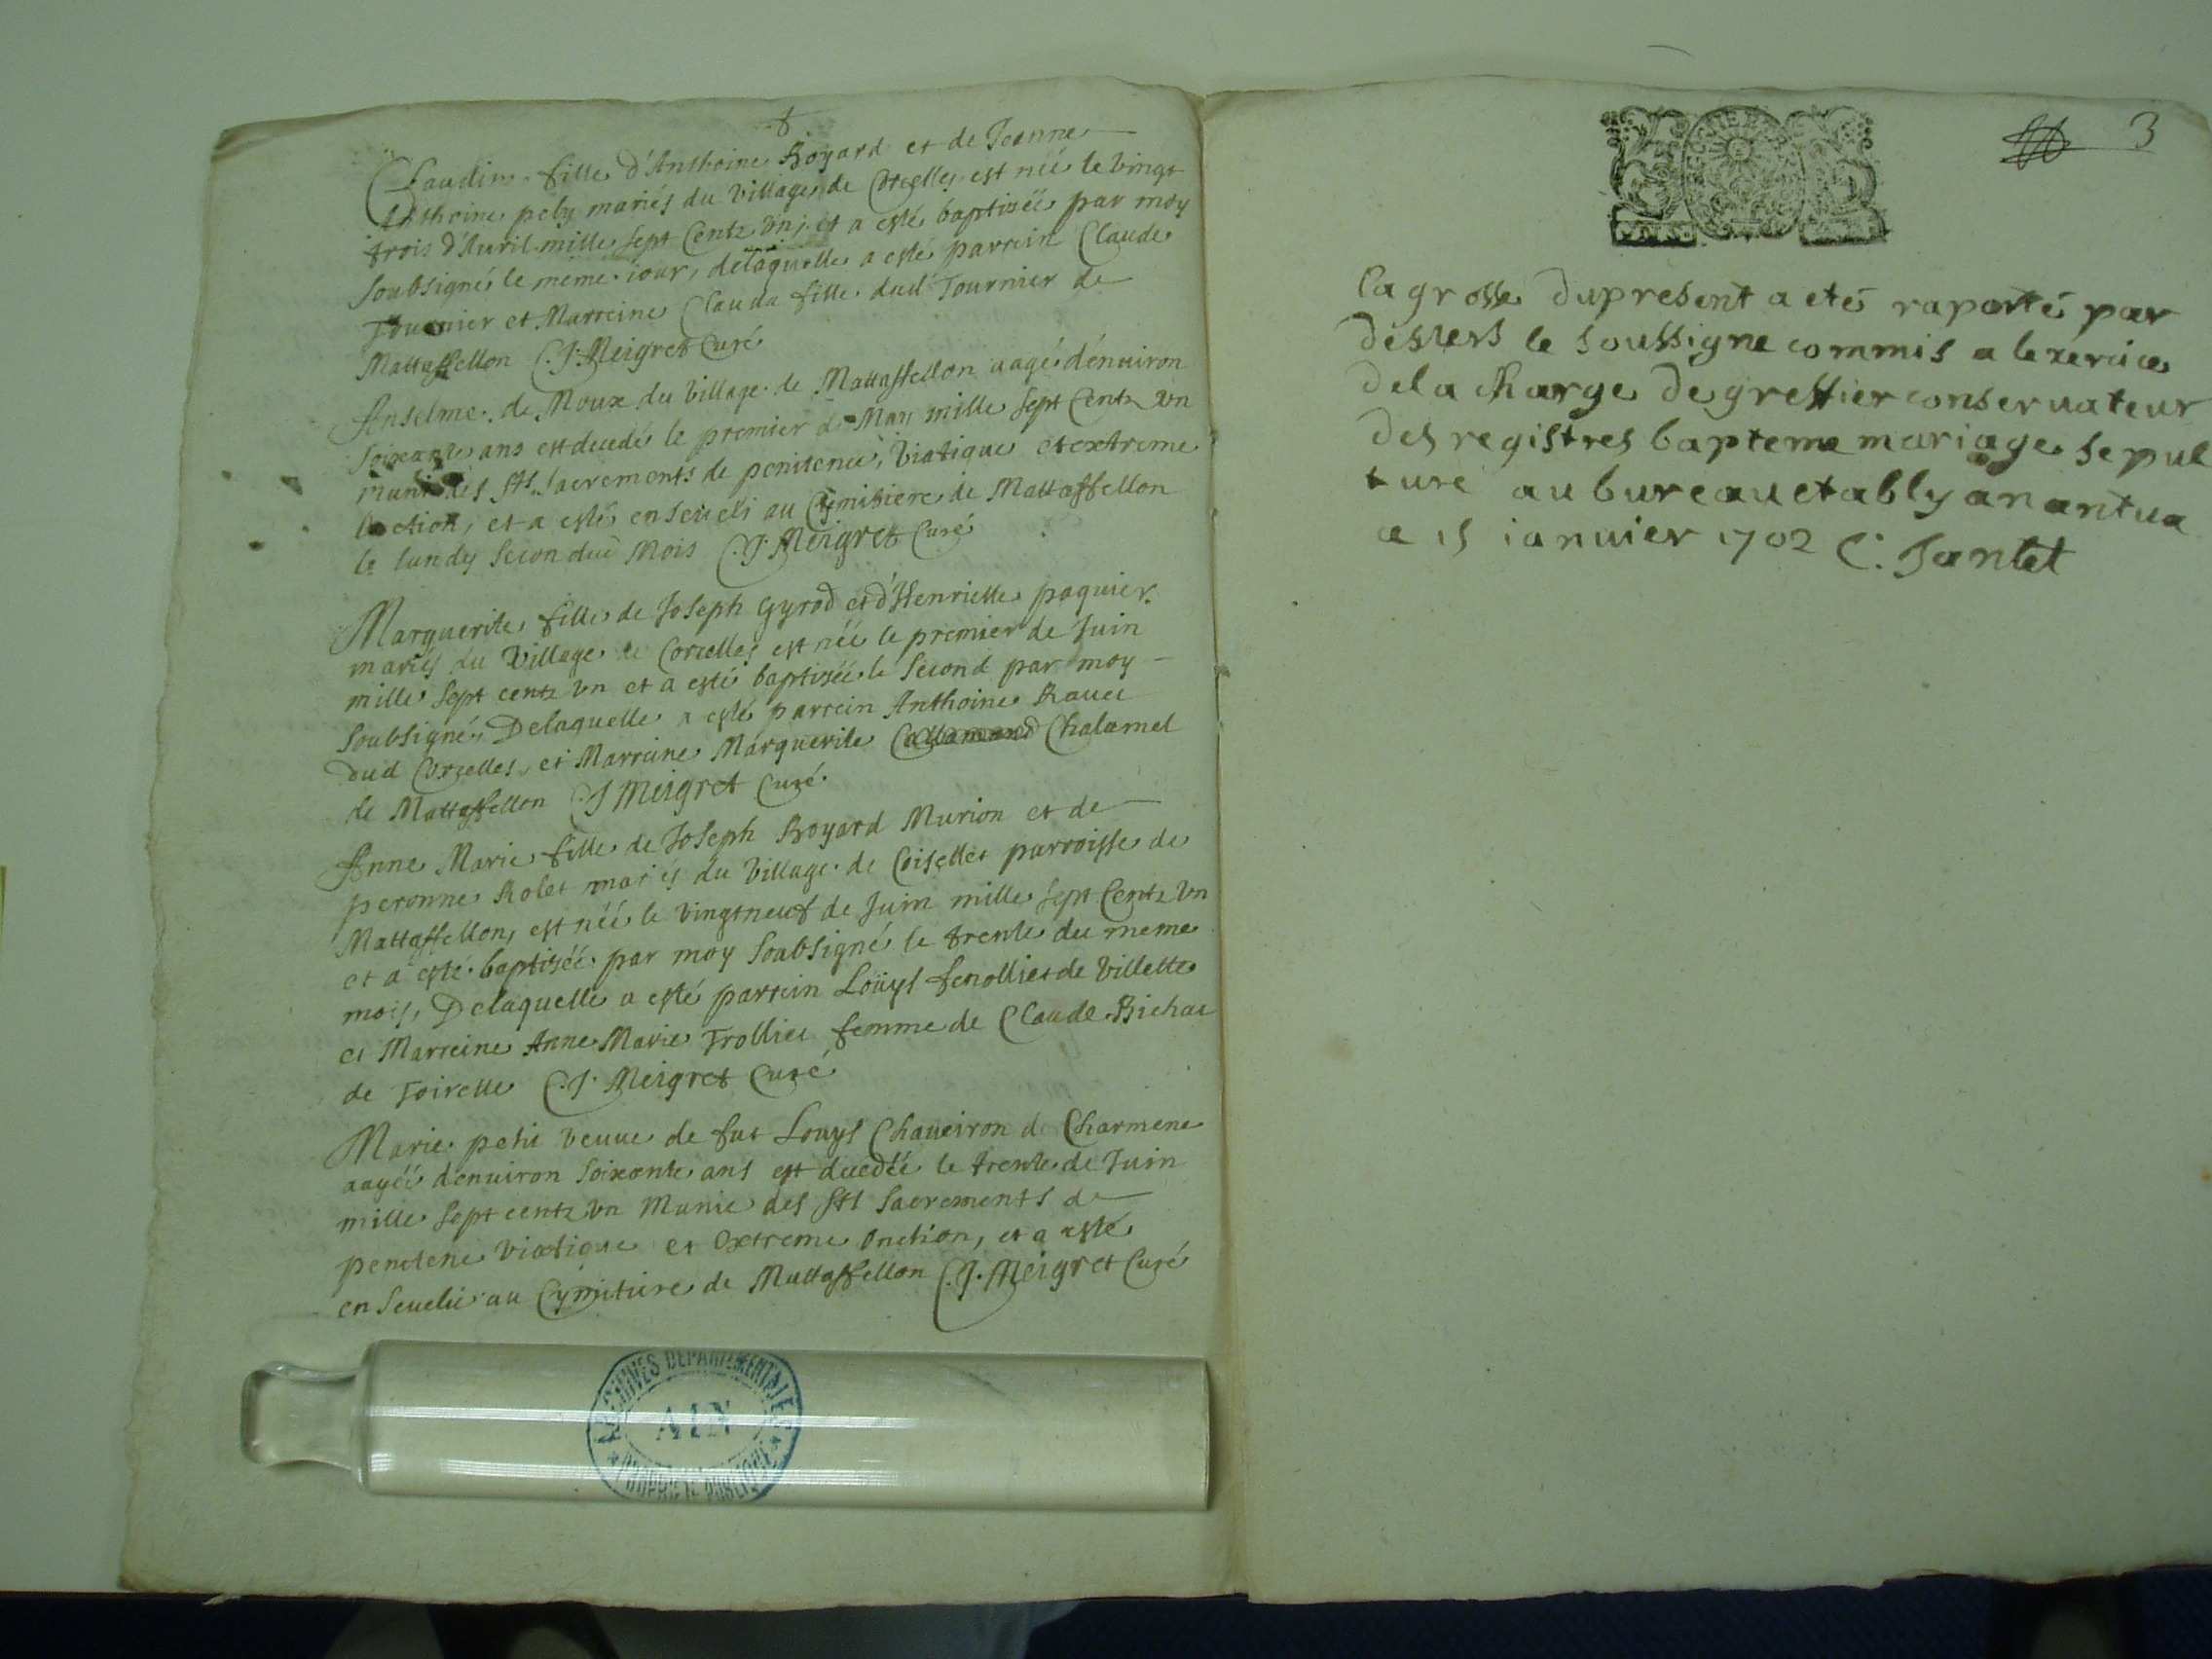 Claudine fille d'Anthoine Royard et de Jeanne
Anthoine pely mariés du village de Corcelles est née le vingt
trois d'Avril mille sept Centz un, et a esté baptisée par moy
soubsigné le meme iour, delaquelle a esté parrein Claude
Tournier et Marreine Clauda fille dud Tournier de
Mattaffellon C. J. Meigret Curé
Anselme de Moux du village de Mattaffellon aagé dénuiron
soixante ans est decedé le premier de May mille sept Centz un
muni des Sts. Sacrements de penitence, Viatique et extreme
onction, et a esté enseueli au Cemitiere de Mattaffellon
le lundy second dud Mois C. J. Meigret Curé
Marguerite fille de Joseph Gyrod et d'Henriette paquier
mariés du village de Corcelles est née le premier de Juin
mille sept centz un et a esté baptisée le second par moy
soubsigné, Delaquelle a esté parrein Anthoine Rauet
dud Corcelles, et Marraine Marguerite Chalamel
de Mattaffellon C. J. Meigret Curé.
Anne Marie fille de Joseph Royard Murion et de
peronne Rolet mariés du village de Coiselles parroisse de
Mattaffellon, est née le vingtneuf de Juin mille sept Centz un
et a esté baptisée par moy soubsigné le trente du meme
mois, Delaquelle a esté parrein Loüys fenolliet de Villette
et Marreine Anne Marie Trolliet femme de Claude Bichat
de Toirette C. J. Meigret Curé
Marie petit veuue de fut Louys Chaueiron de Charmene
aagée denuiron soixante ans est decedée le trente de Juin
mille sept centz un Munie des Sts Sacrements de
penitene Viatique et Extreme Onction, et a esté
enseuelie au Cymitiere de Mattaffellon C. J. Meigret Curé
ARCHIVES DEPARTEMENTALES
AIN
PROPRIETE PUBLIQUE
3
la grosse dupresent a eté raporté par
deuers le soussigne commis a lexercice
dela charge de greffier conseruateur
des registres bapteme mariage sepul
ture au bureau etably anantua
ce 15 ianuier 1702 C. Jantet